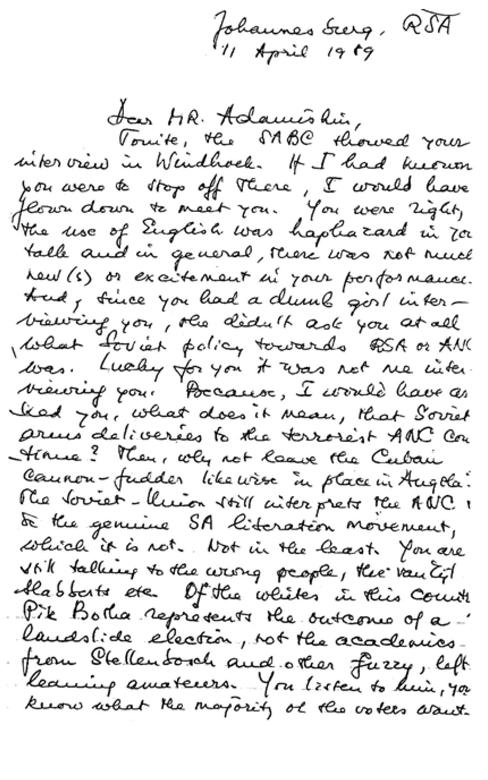 Johannesburg, RSA
11 April 1989
Dear MR. Adamishin,
Tonite, the SABC showed your
interview in Windhoek. If I had known
you were to stop off there, I would have
flown down to meet you. You were right,
the use of English was haphazard in
talk and in general, there was not much
new(s) or excitement in your performance.
And, since you had a dumb girl inter-
viewing you, she didn't ask you at all
what Soviet policy towards RSA or ANC
was. Lucky for you it was not me inter
viewing you. Because, I would have as
ked you, what does it mean, that Soviet
arms deliveries to the terrorist ANC con
tinue? Then, why not leave the Cuban
cannon-fudder likewise in place in Angola?
The Soviet-Union still interprets the ANC
the genuine SA literation movement,
which it is not. Not in the least. You are
still talking to the wrong people, the van Zyl
Slabberts etc. Of the whites in this
Pik Botha represents the outcome of a
landslide election, not the academics
from Stellenbosch and other fuzzy, left
leaning amateurs. You listen to him, you
know what the majority of the voters want.